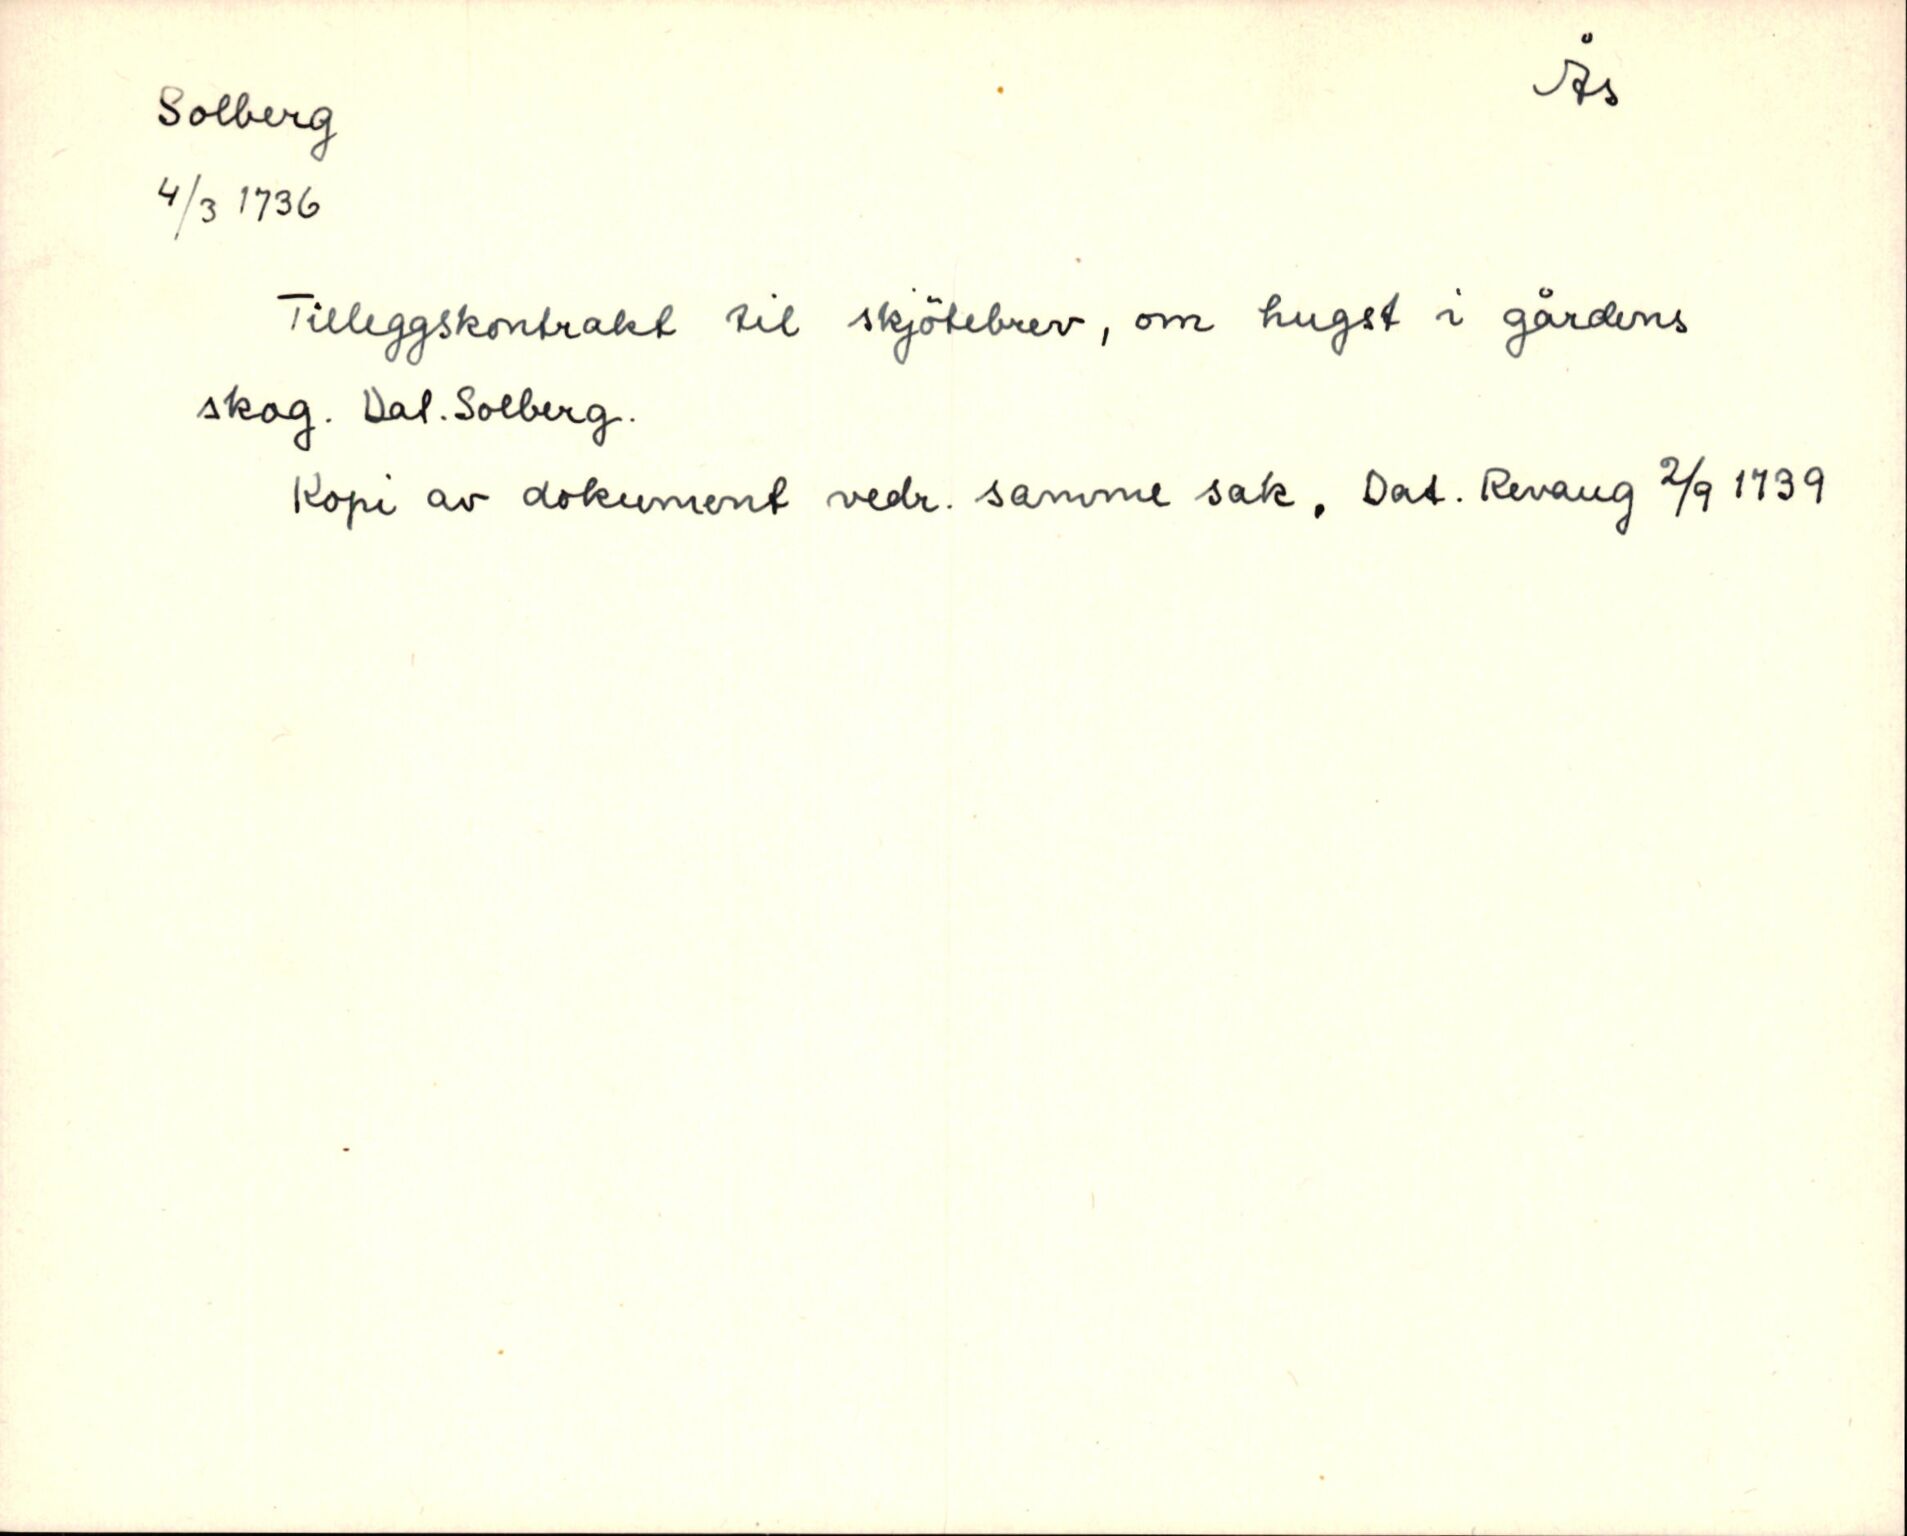 Ås
Solberg
4/3 1736
Tilleggskontrakt til skjötebrev, om hugst i gårdens
skog. Dat. Solberg.
Kopi av dokument vedr. samme sak. Dat. Revaug 2/9 1739